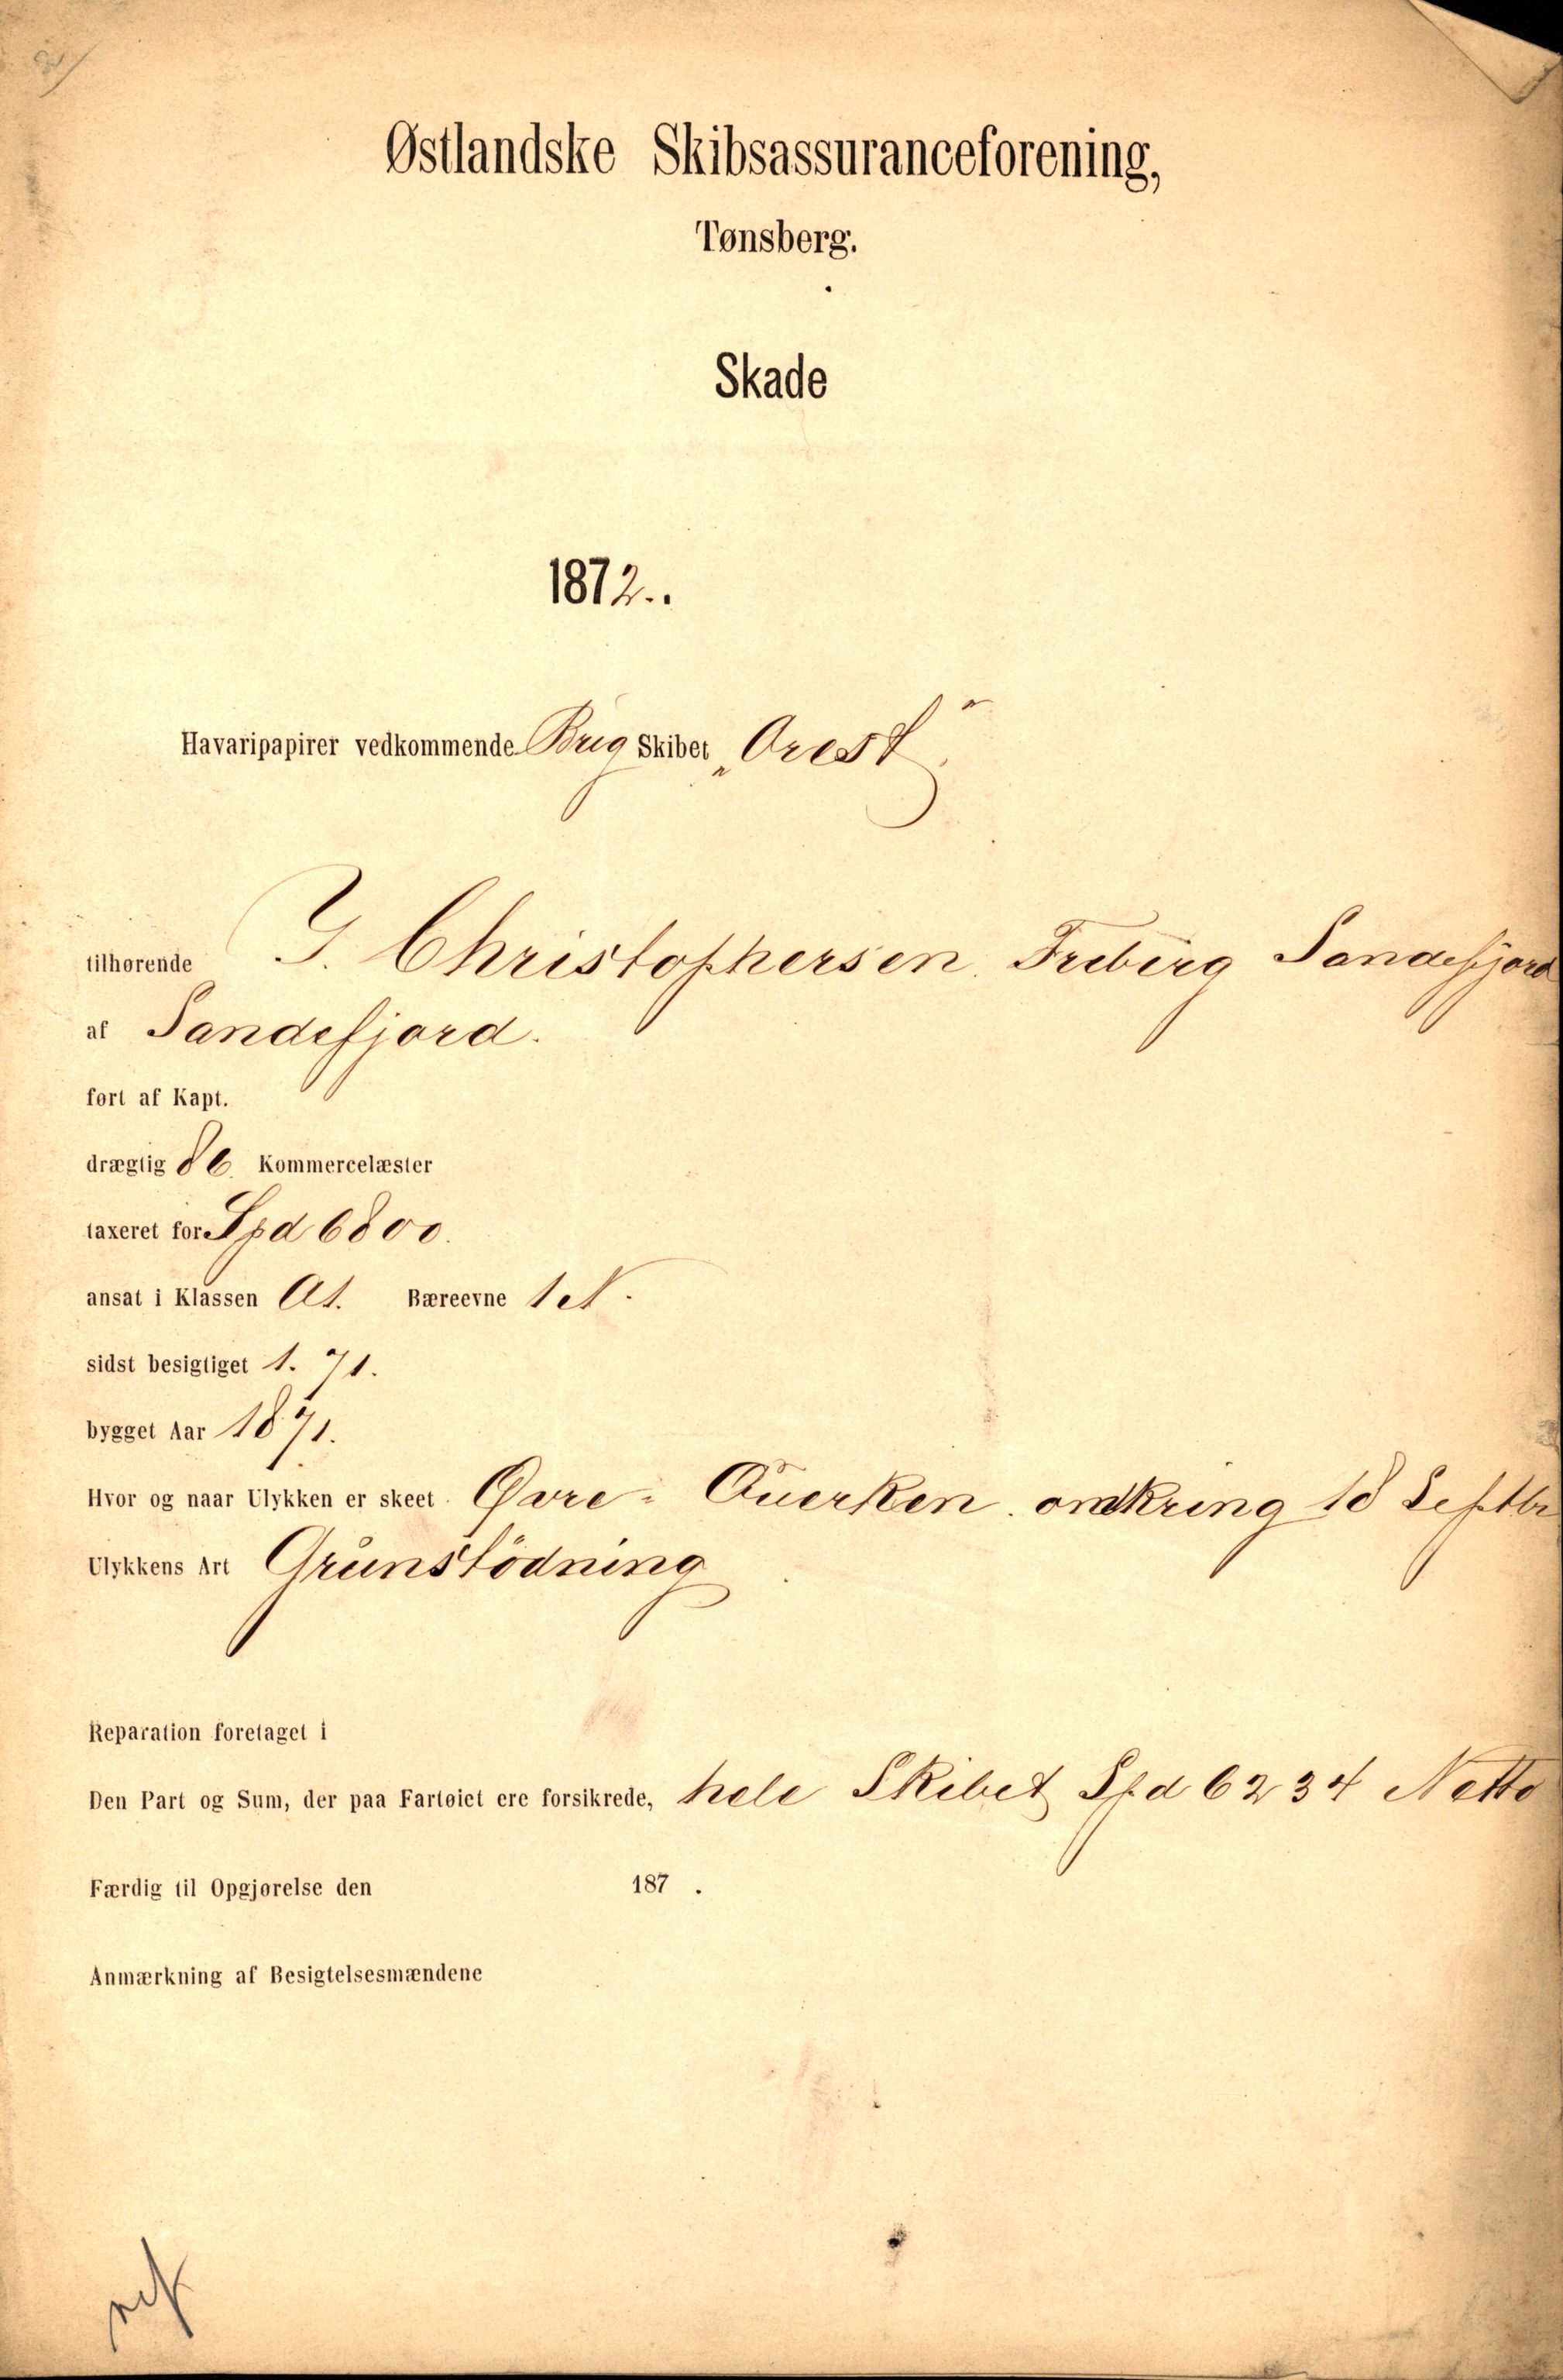 Østlandske Skibsassuranceforening,
Tønsberg.
Skade
1872..
Havaripapirer vedkommende Brig Skibet „Orest"
tilhørende J. Christophersen Freberg Sandefjord
af Sandefjord.
ført af Kapt.
drægtig 86 Kommercelæster
taxeret for Spd 6800.
ansat i Klassen A1. Bæreevne 1 N.
sidst besigtiget 1. 71.
bygget Aar 1871.
Hvor og naar Ulykken er skeet Øvre Querken omkring 18 Septbr
Ulykkens Art Grunstødning
Reparation foretaget i
Den Part og Sum, der paa Fartøiet ere forsikrede, hele Skibet Spd 6234 Netto
Færdig til Opgjørelse den 187 .
Anmærkning af Besigtelsesmændene